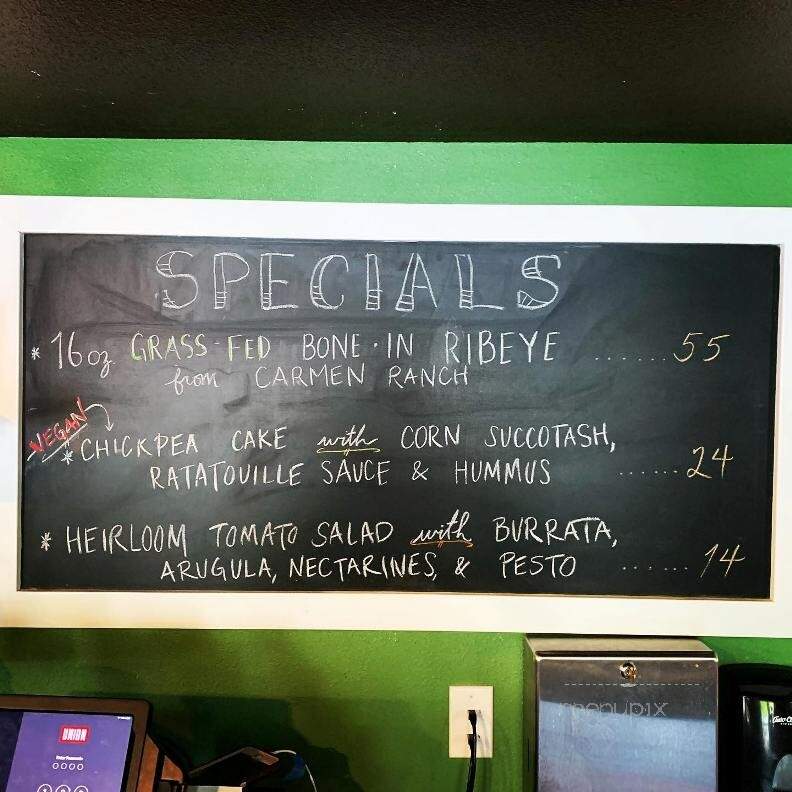 SPECIALS
* 16oz GRASS-FED BONE·IN RIBEYE ......55
from CARMEN RANCH
VEGAN
* CHICKPEA CAKE with CORN SUCCOTASH,
RATATOUILLE SAUCE & HUMMUS ......24
* HEIRLOOM TOMATO SALAD with BURRATA,
ARUGULA, NECTARINES, & PESTO ......14
menupix
UNION